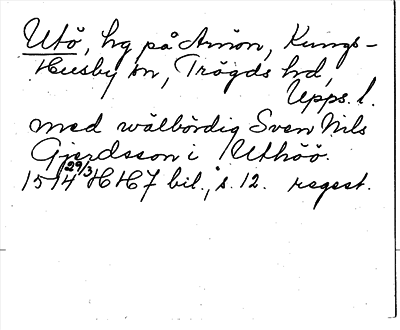 Utö, hg på Arnön, Kungs-
Husby sn, Trögds hd,
Upps. l.
med wälbördig Sven Nils
Gjerdsson i Uthöö.
1514 29/3 HH 7 bil., s. 12. regest.